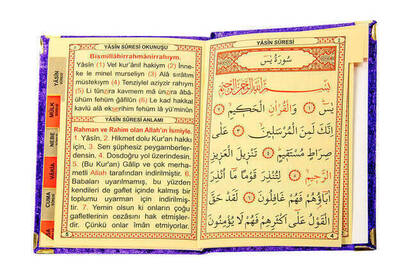 YÂSÎN SÛRESİ OKUNUŞU
Bismillâhirrahmânirrahıym.
Yâsîn (1) Vel kur'ânil hakiym (2) İnne-
ke le minel murseliyn (3) Alâ sırâtın
müstekıym (4) Tenziylel aziyzir rahıym
(5) Li tünzira kavmem mâ ünzira âbâ-
ühüm fehüm ğâfilûn (6) Le kad hakkal
kavlü alâ ekserihim fehüm lâ yü'minûn
YÂSÎN SÛRESİ ANLAMI
Rahman ve Rahim olan Allah'ın İsmiyle.
1. Yâsîn. 2. Hikmet dolu Kur'an hakkı
için, 3. Sen şüphesiz peygamberler-
densin. 4. Dosdoğru yol üzerindesin.
5. (Bu Kur'an) Gâlip ve çok merha-
metli Allah tarafından indirilmiştir. 6.
Babaları uyarılmamış, bu yüzden
kendileri de gaflet içinde kalmış bir
toplumu uyarman için indirilmiş-
tir. 7. Yemin olsun ki onların çoğu
gafletlerinin cezasını hak etmişler-
dir. Çünkü onlar îman etmiyorlar.
YÂSÎN
MÜLK
NEBE
VAKIA
CUMA
YÂSÎN SÛRESİ
سُورَةُ يٰسٓ
بِسْمِ اللّٰهِ الرَّحْمٰنِ الرَّحِيمِ
يٰسٓ ﴿١﴾ وَالْقُرْاٰنِ الْحَكِيمِ ﴿٢﴾
اِنَّكَ لَمِنَ الْمُرْسَلِينَ ﴿٣﴾ عَلٰى
صِرَاطٍ مُسْتَقِيمٍ ﴿٤﴾ تَنْزِيلَ الْعَزِيزِ
الرَّحِيمِ ﴿٥﴾ لِتُنْذِرَ قَوْمًا مَا اُنْذِرَ
اٰبَاؤُهُمْ فَهُمْ غَافِلُونَ ﴿٦﴾ لَقَدْ حَقَّ
الْقَوْلُ عَلٰى اَكْثَرِهِمْ فَهُمْ لَا يُؤْمِنُونَ
4